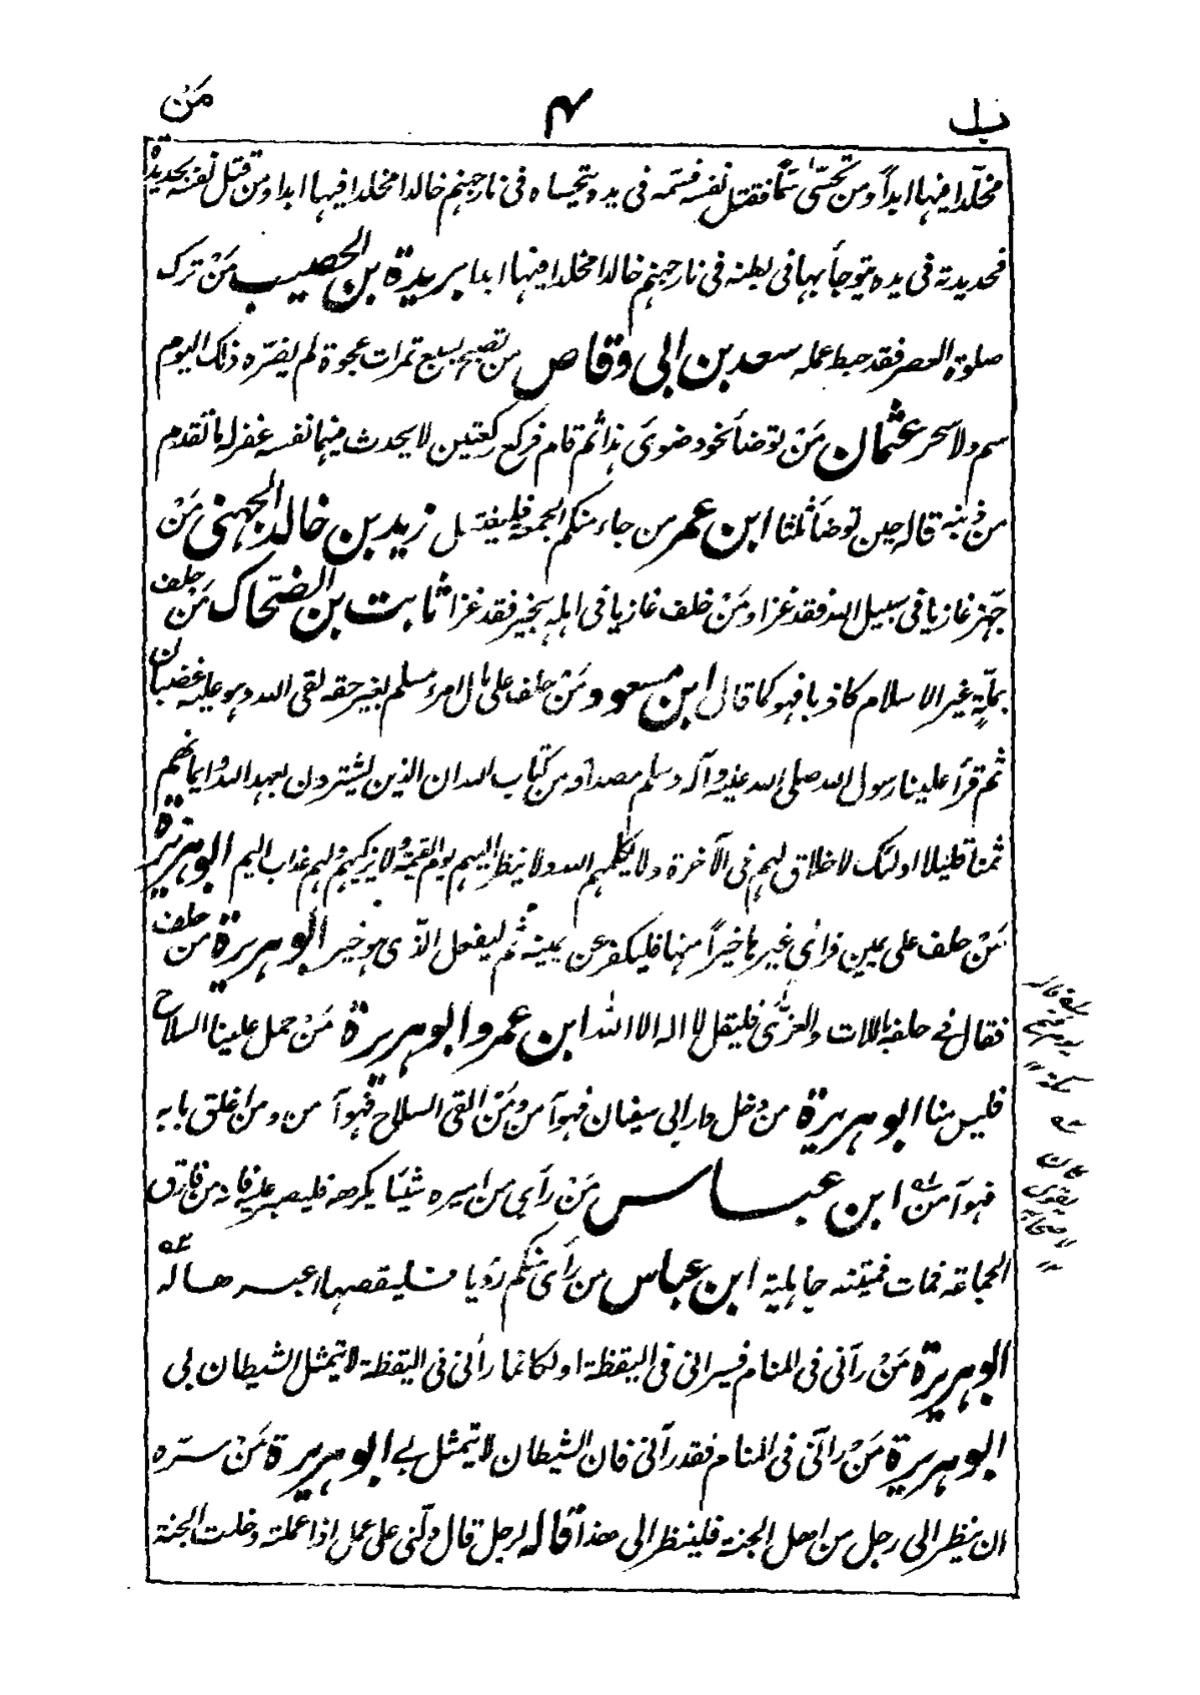 مَنْ ۴ بل
مخلّدا فيها ابداً ومن تحسّى سمًّا فقتل نفسه فسمه فى يده يتحساه فى نار جهنم خالدا مخلدا فيها ابدا ومن قتل نفسه بحديدة
فحديدته فى يده يتوجأ بها فى بطنه فى نار جهنم خالدا مخلدا فيها ابدا بريدة بن الحصيب مَنْ ترك
صلوة العصر فقد حبط عمله سعد بن ابى وقاص من تصبح بسبع تمرات عجوة لم يضرّه ذلك اليوم
سم ولا سحر عثمان مَنْ توضأ نحو وضوئ هذا ثم قام فركع ركعتين لا يحدث فيهما نفسه غفر له ما تقدم
من ذنبه قاله حين توضأ ثلثا ابن عمر من جاء منكم الجمعة فليغتسل زيد بن خالد الجهنى مَنْ
جهّز غازيا فى سبيل الله فقد غزا ومَنْ خلف غازيا فى اهله بخير فقد غزا ثابت بن الضحّاك مَنْ حلف
بملّة غير الاسلام كاذبا فهو كما قال ابن مسعود مَنْ حلف على مال امرء مسلم بغير حقه لقى الله وهو عليه غضبان
ثم قرأ علينا رسول الله صلى الله عليه وآله وسلم مصداقه من كتاب الله ان الذين يشترون بعهد الله وايمانهم
ثمنا قليلا اولئك لا خلاق لهم فى الآخرة ولا يكلمهم الله ولا ينظر اليهم يوم القيمة ولا يزكيهم ولهم عذاب اليم ابو هريرة
مَنْ حلف على يمين فرأى غيرها خيراً منها فليكفر عن يمينه ثم ليفعل الذى هو خير ابو هريرة من حلف
فقال فى حلفه باللات والعزّى فليقل لا اله الا الله ابن عمر و ابو هريرة مَنْ حمل علينا السلاح
فليس منا ابو هريرة من دخل دار ابى سفيان فهو آمن ومَنْ القى السلاح فهو آمن ومن اغلق بابه
فهو آمن ابن عباس مَنْ رأى من اميره شيئا يكرهه فليصبر عليه فانه من فارق
الجماعة فمات فميتته جاهلية ابن عباس من رأى منكم رؤيا فليقصها اعبرها له
ابو هريرة مَنْ رآنى فى المنام فسيرانى فى اليقظة او لكانما رآنى فى اليقظة لا يتمثل الشيطان بى
ابو هريرة مَنْ رآنى فى المنام فقد رآنى فان الشيطان لا يتمثل بى ابو هريرة مَنْ سرّه
ان ينظر الى رجل من اهل الجنة فلينظر الى هذا قاله لرجل قال دلّنى على عمل اذا عملته دخلت الجنة